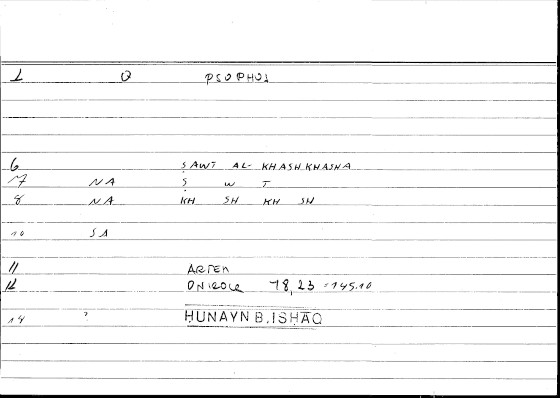 1 Q PSOPHOS
6 ṢAWT AL-KHASHKHASHA
7 NA Ṣ W T
8 NA KH SH KH SH
10 SA
11 ARTEM
12 ONIROCR 78,23 = 145.10
14 ? ḤUNAYN B. ISḤĀQ